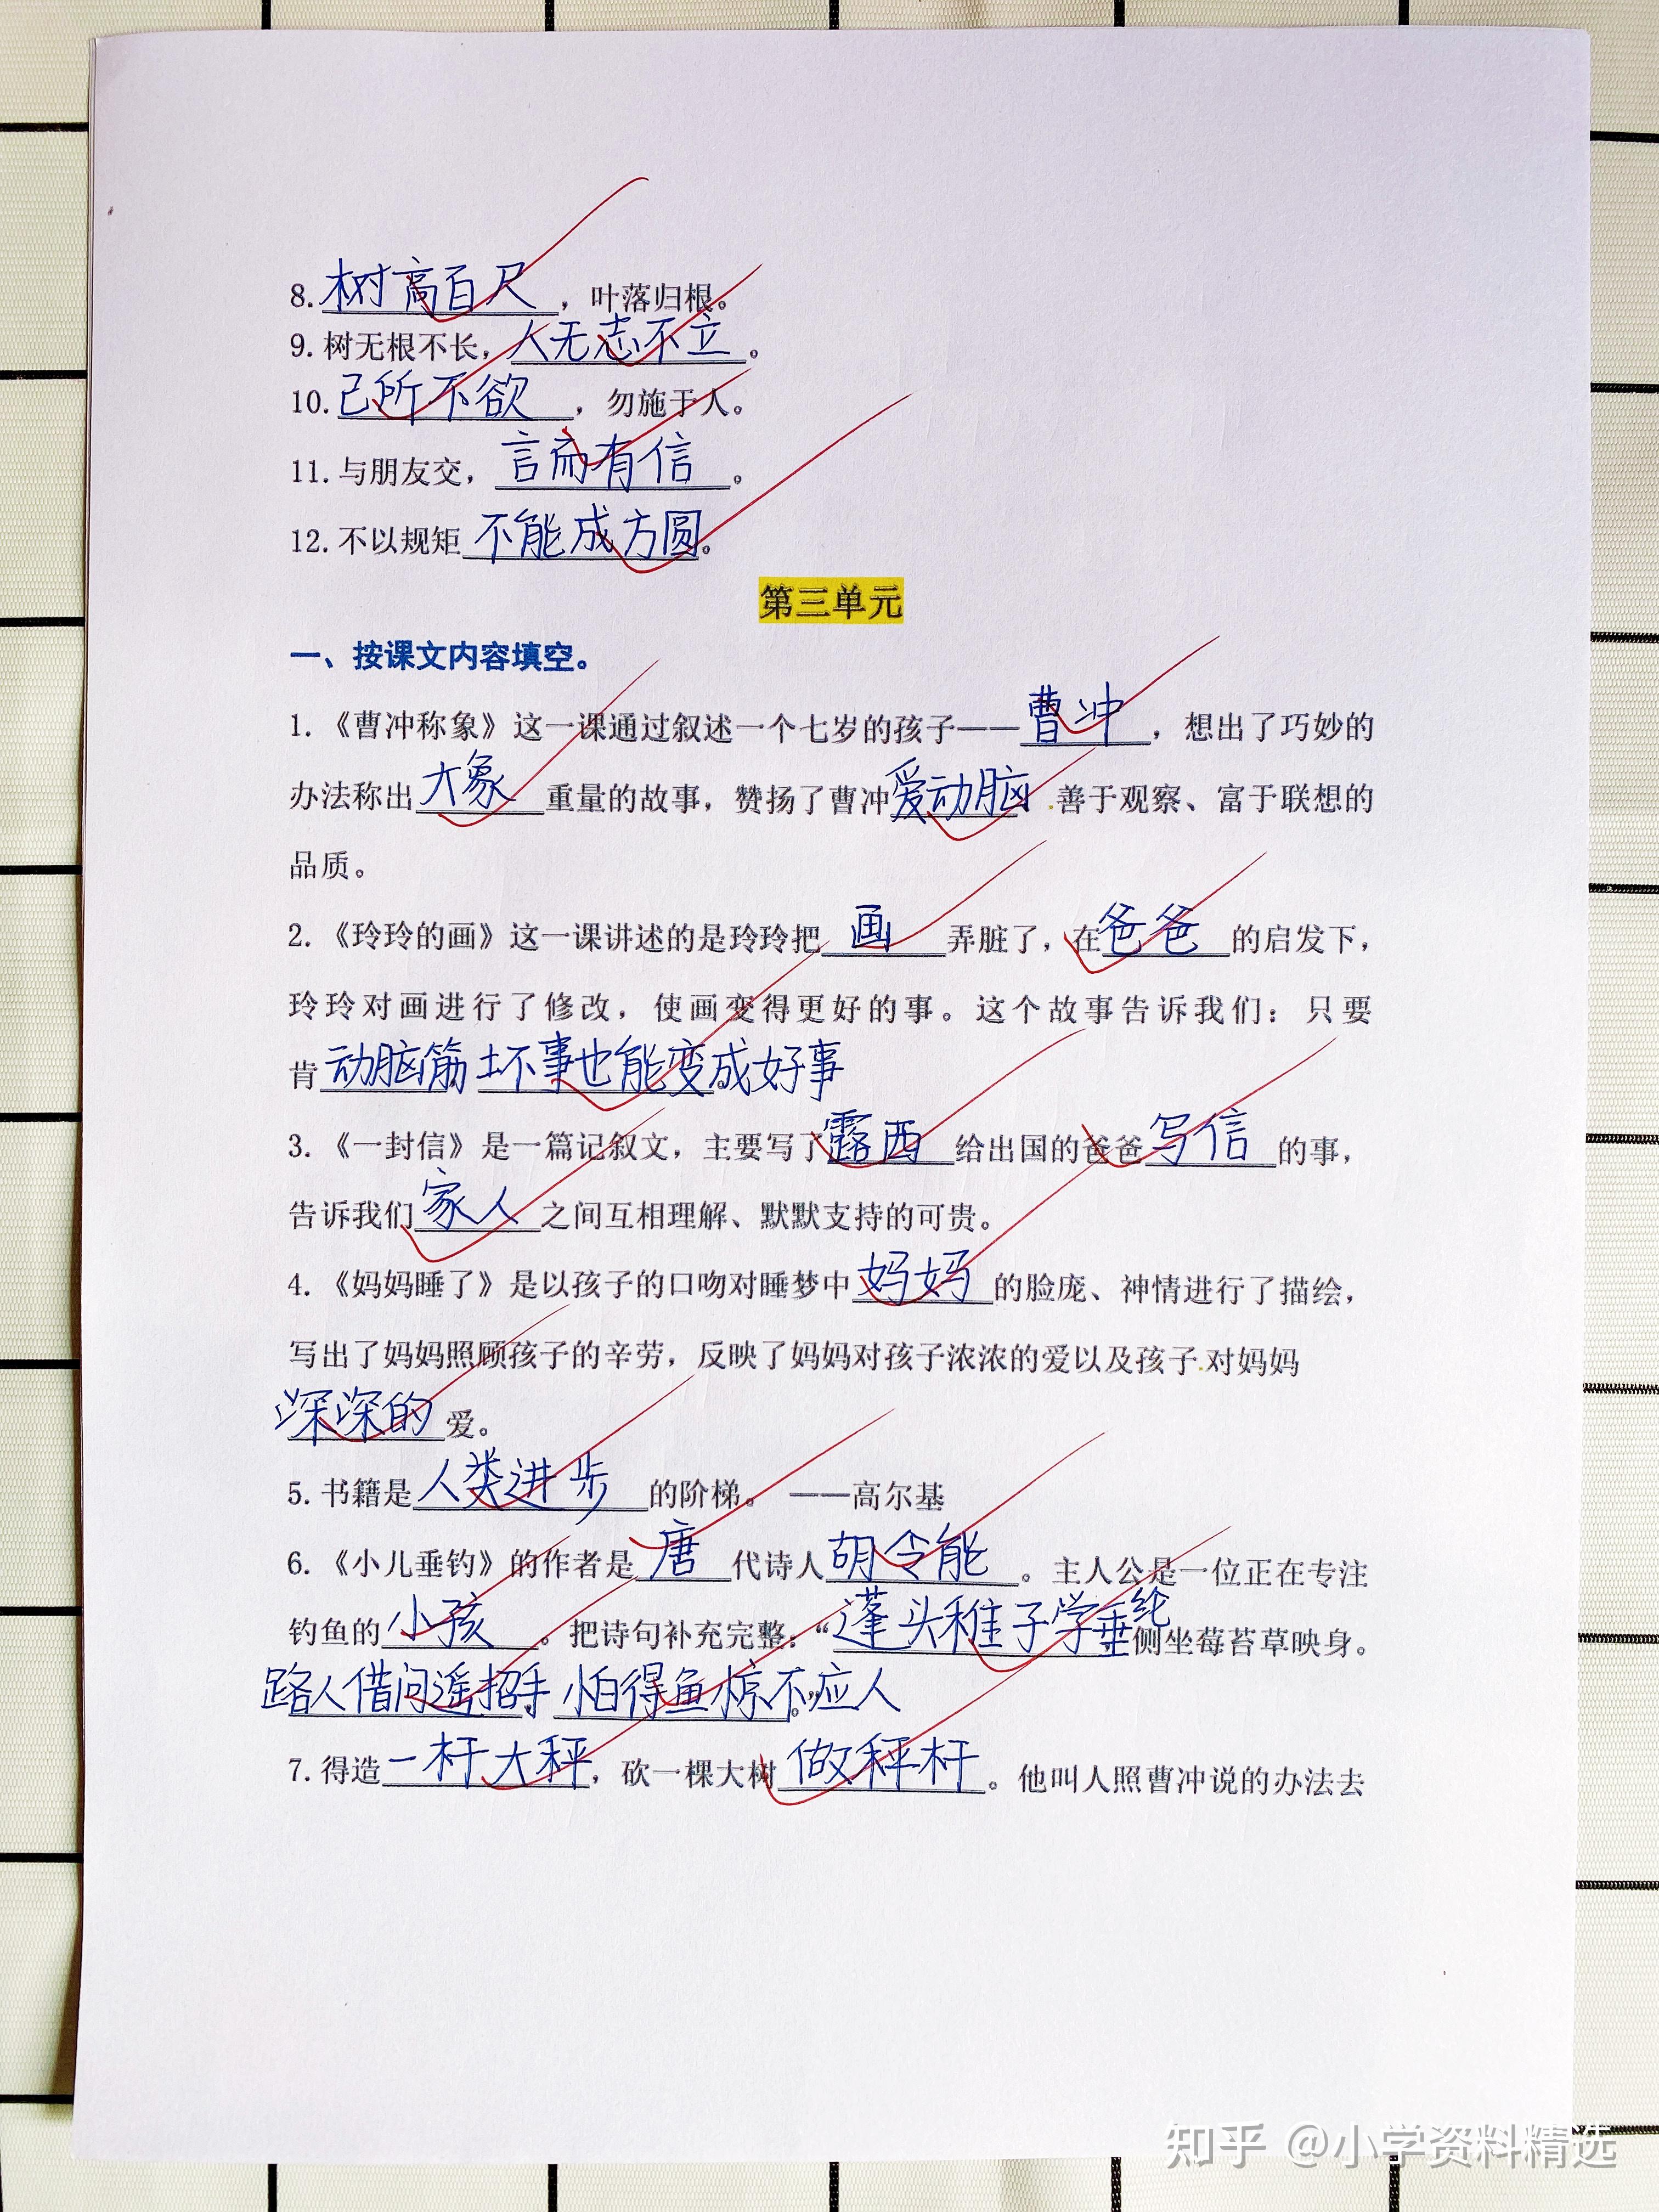 8.树高百尺，叶落归根。
9.树无根不长，人无志不立。
10.己所不欲，勿施于人。
11.与朋友交，言而有信。
12.不以规矩不能成方圆。
第三单元
一、按课文内容填空。
1.《曹冲称象》这一课通过叙述一个七岁的孩子——曹冲，想出了巧妙的
办法称出大象重量的故事，赞扬了曹冲爱动脑 善于观察、富于联想的
品质。
2.《玲玲的画》这一课讲述的是玲玲把画弄脏了，在爸爸的启发下，
玲玲对画进行了修改，使画变得更好的事。这个故事告诉我们：只要
肯动脑筋 坏事也能变成好事
3.《一封信》是一篇记叙文，主要写了露西给出国的爸爸写信的事，
告诉我们家人之间互相理解、默默支持的可贵。
4.《妈妈睡了》是以孩子的口吻对睡梦中妈妈的脸庞、神情进行了描绘，
写出了妈妈照顾孩子的辛劳，反映了妈妈对孩子浓浓的爱以及孩子对妈妈
深深的爱。
5.书籍是人类进步的阶梯。 ——高尔基
6.《小儿垂钓》的作者是唐代诗人胡令能。主人公是一位正在专注
钓鱼的小孩。把诗句补充完整：“蓬头稚子学垂纶侧坐莓苔草映身。
路人借问遥招手，怕得鱼惊不应人。”
7.得造一杆大秤，砍一棵大树做秤杆。他叫人照曹冲说的办法去
知乎 @小学资料精选